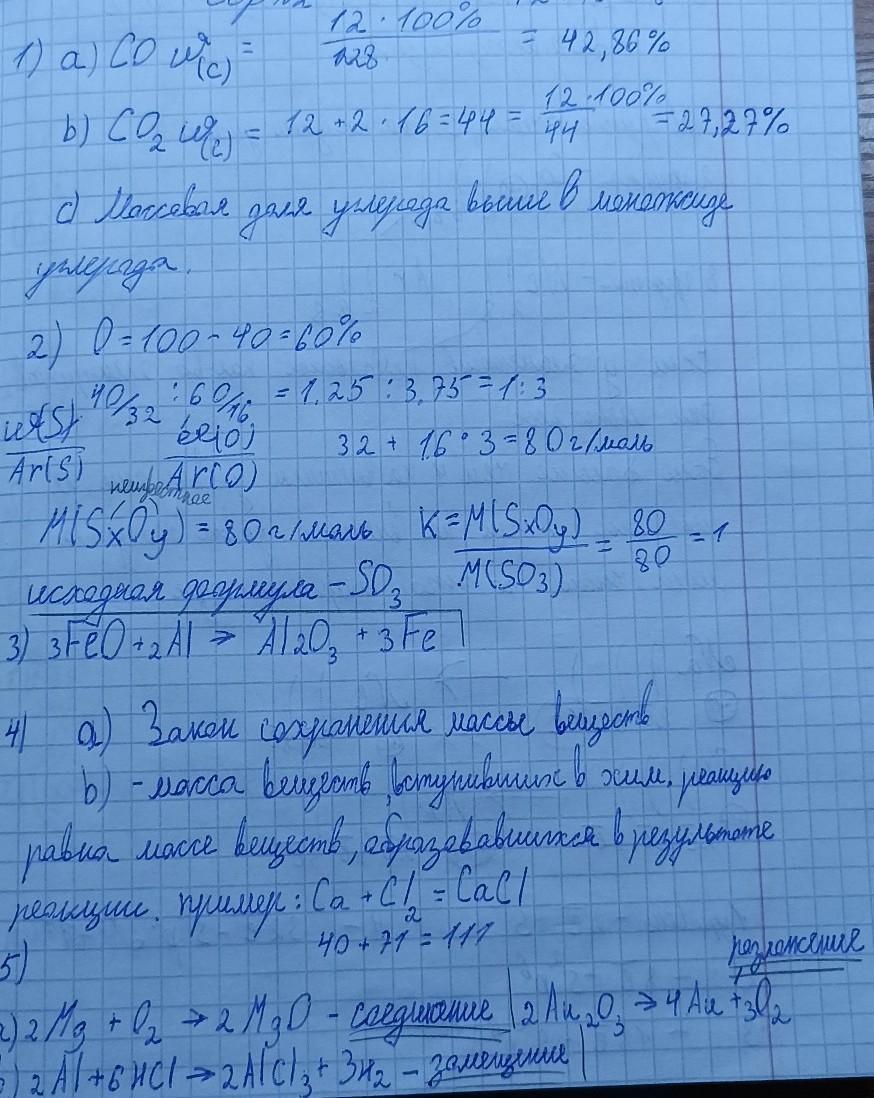 1) a) CO ω(c) = 12 · 100% / 28 = 42,86%
b) CO₂ ω(c) = 12 + 2 · 16 = 44 = 12 · 100% / 44 = 27,27%
c) Массовая доля углерода выше в монооксиде
углерода.
2) O = 100 - 40 = 60%
40/32 : 60/16 = 1,25 : 3,75 = 1 : 3
ω(S) / Ar(S) ω(O) / Ar(O) 32 + 16 · 3 = 80 г/моль
неизвестное
M(SxOy) = 80 г/моль K = M(SxOy) / M(SO₃) = 80 / 80 = 1
исходная формула - SO₃
3) 3FeO + 2Al → Al₂O₃ + 3Fe
4) a) Закон сохранения массы веществ
b) - масса веществ, вступивших в хим. реакцию
равна массе веществ, образовавшихся в результате
реакции. пример: Ca + Cl₂ = CaCl
40 + 71 = 111
5) разложение
a) 2Mg + O₂ → 2MgO - соединение | 2Au₂O₃ → 4Au + 3O₂
2Al + 6HCl → 2AlCl₃ + 3H₂ - замещение |